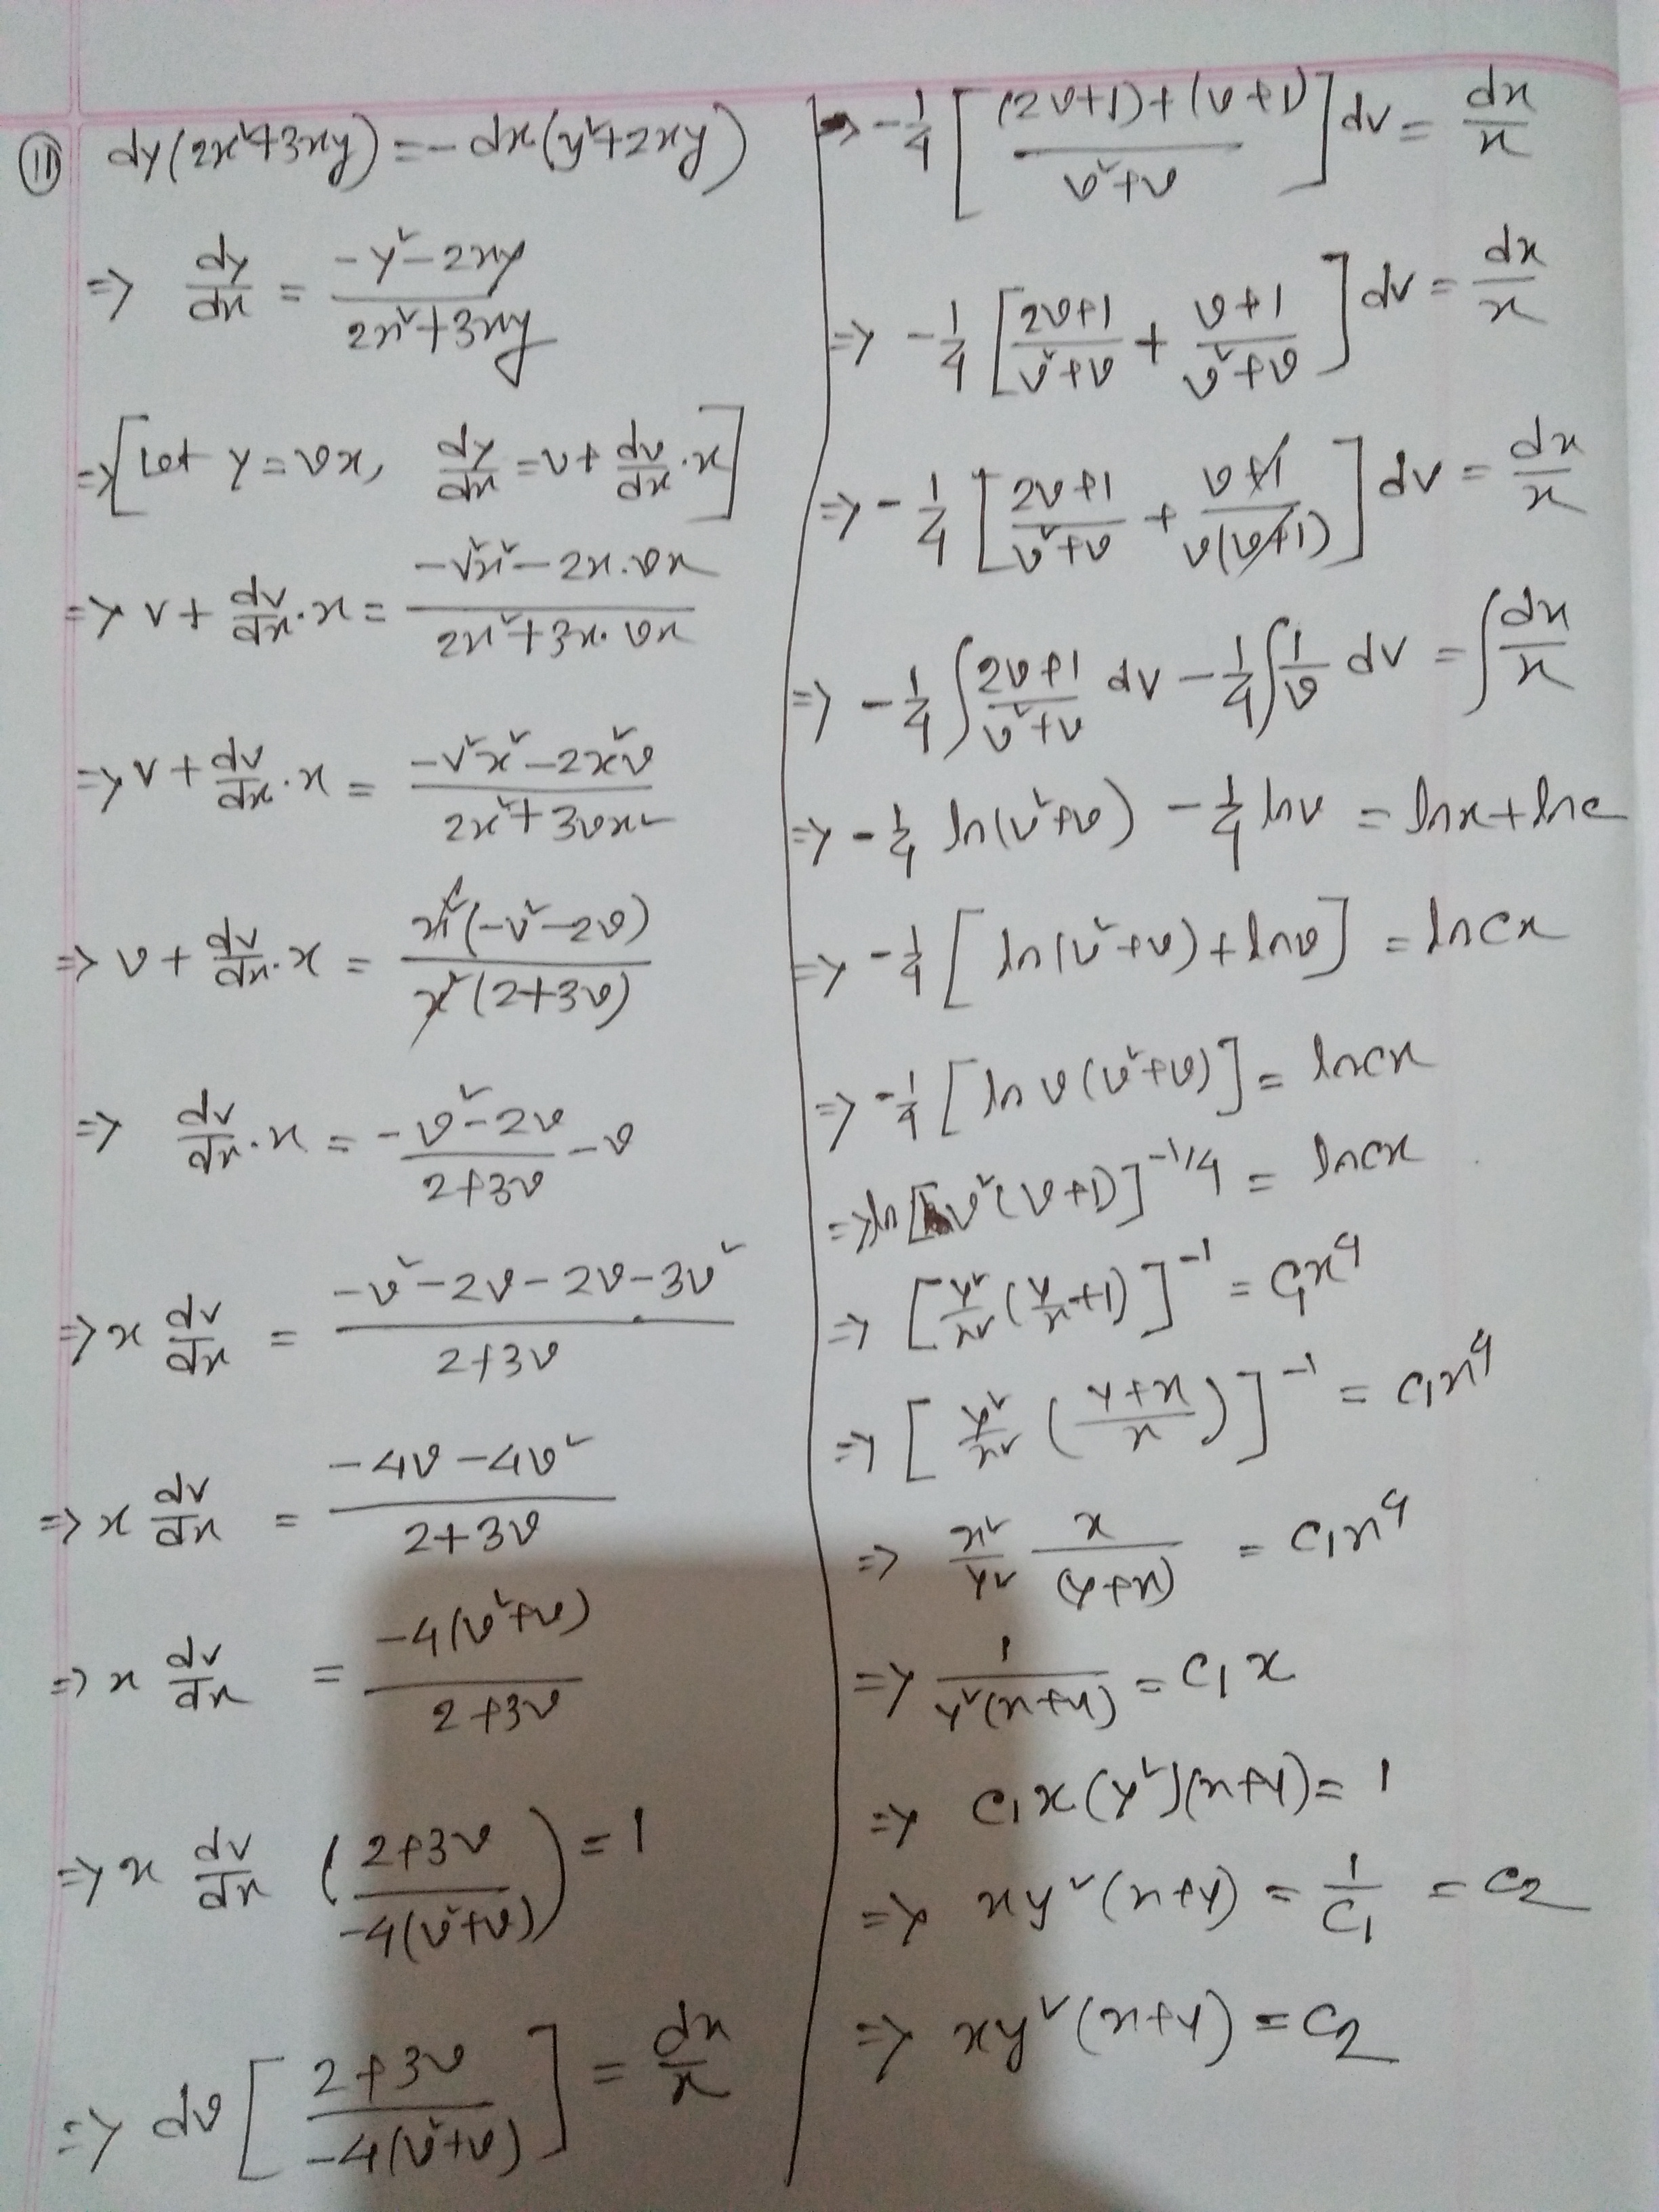 ⑪ dy(2x²+3xy) = -dx(y²+2xy)
=> dy/dx = (-y²-2xy)/(2x²+3xy)
=> [Let y=vx, dy/dx = v + dv/dx · x]
=> v + dv/dx · x = (-v²x² - 2x·vx)/(2x²+3x·vx)
=> v + dv/dx · x = (-v²x² - 2x²v)/(2x²+3vx²)
=> v + dv/dx · x = x²(-v²-2v)/x²(2+3v)
=> dv/dx · x = (-v²-2v)/(2+3v) - v
=> x dv/dx = (-v²-2v-2v-3v²)/(2+3v)
=> x dv/dx = (-4v-4v²)/(2+3v)
=> x dv/dx = -4(v²+v)/(2+3v)
=> x dv/dx ((2+3v)/(-4(v²+v))) = 1
=> dv [(2+3v)/(-4(v²+v))] = dx/x
=> -1/4 [((2v+1)+(v+1))/(v²+v)] dv = dx/x
=> -1/4 [(2v+1)/(v²+v) + (v+1)/(v²+v)] dv = dx/x
=> -1/4 [(2v+1)/(v²+v) + (v+1)/(v(v+1))] dv = dx/x
=> -1/4 ∫ (2v+1)/(v²+v) dv - 1/4 ∫ 1/v dv = ∫ dx/x
=> -1/4 ln(v²+v) - 1/4 lnv = lnx + lnc
=> -1/4 [ln(v²+v) + lnv] = lncx
=> -1/4 [ln v(v²+v)] = lncx
=> ln [v²(v+1)]^(-1/4) = lncx
=> [y²/x² (y/x +1)]^(-1) = c₁x⁴
=> [y²/x² ((y+x)/x)]^(-1) = c₁x⁴
=> x²/y² x/(y+x) = c₁x⁴
=> 1/(y²(x+y)) = c₁x
=> c₁x(y²)(x+y) = 1
=> xy²(x+y) = 1/c₁ = c₂
=> xy²(x+y) = c₂